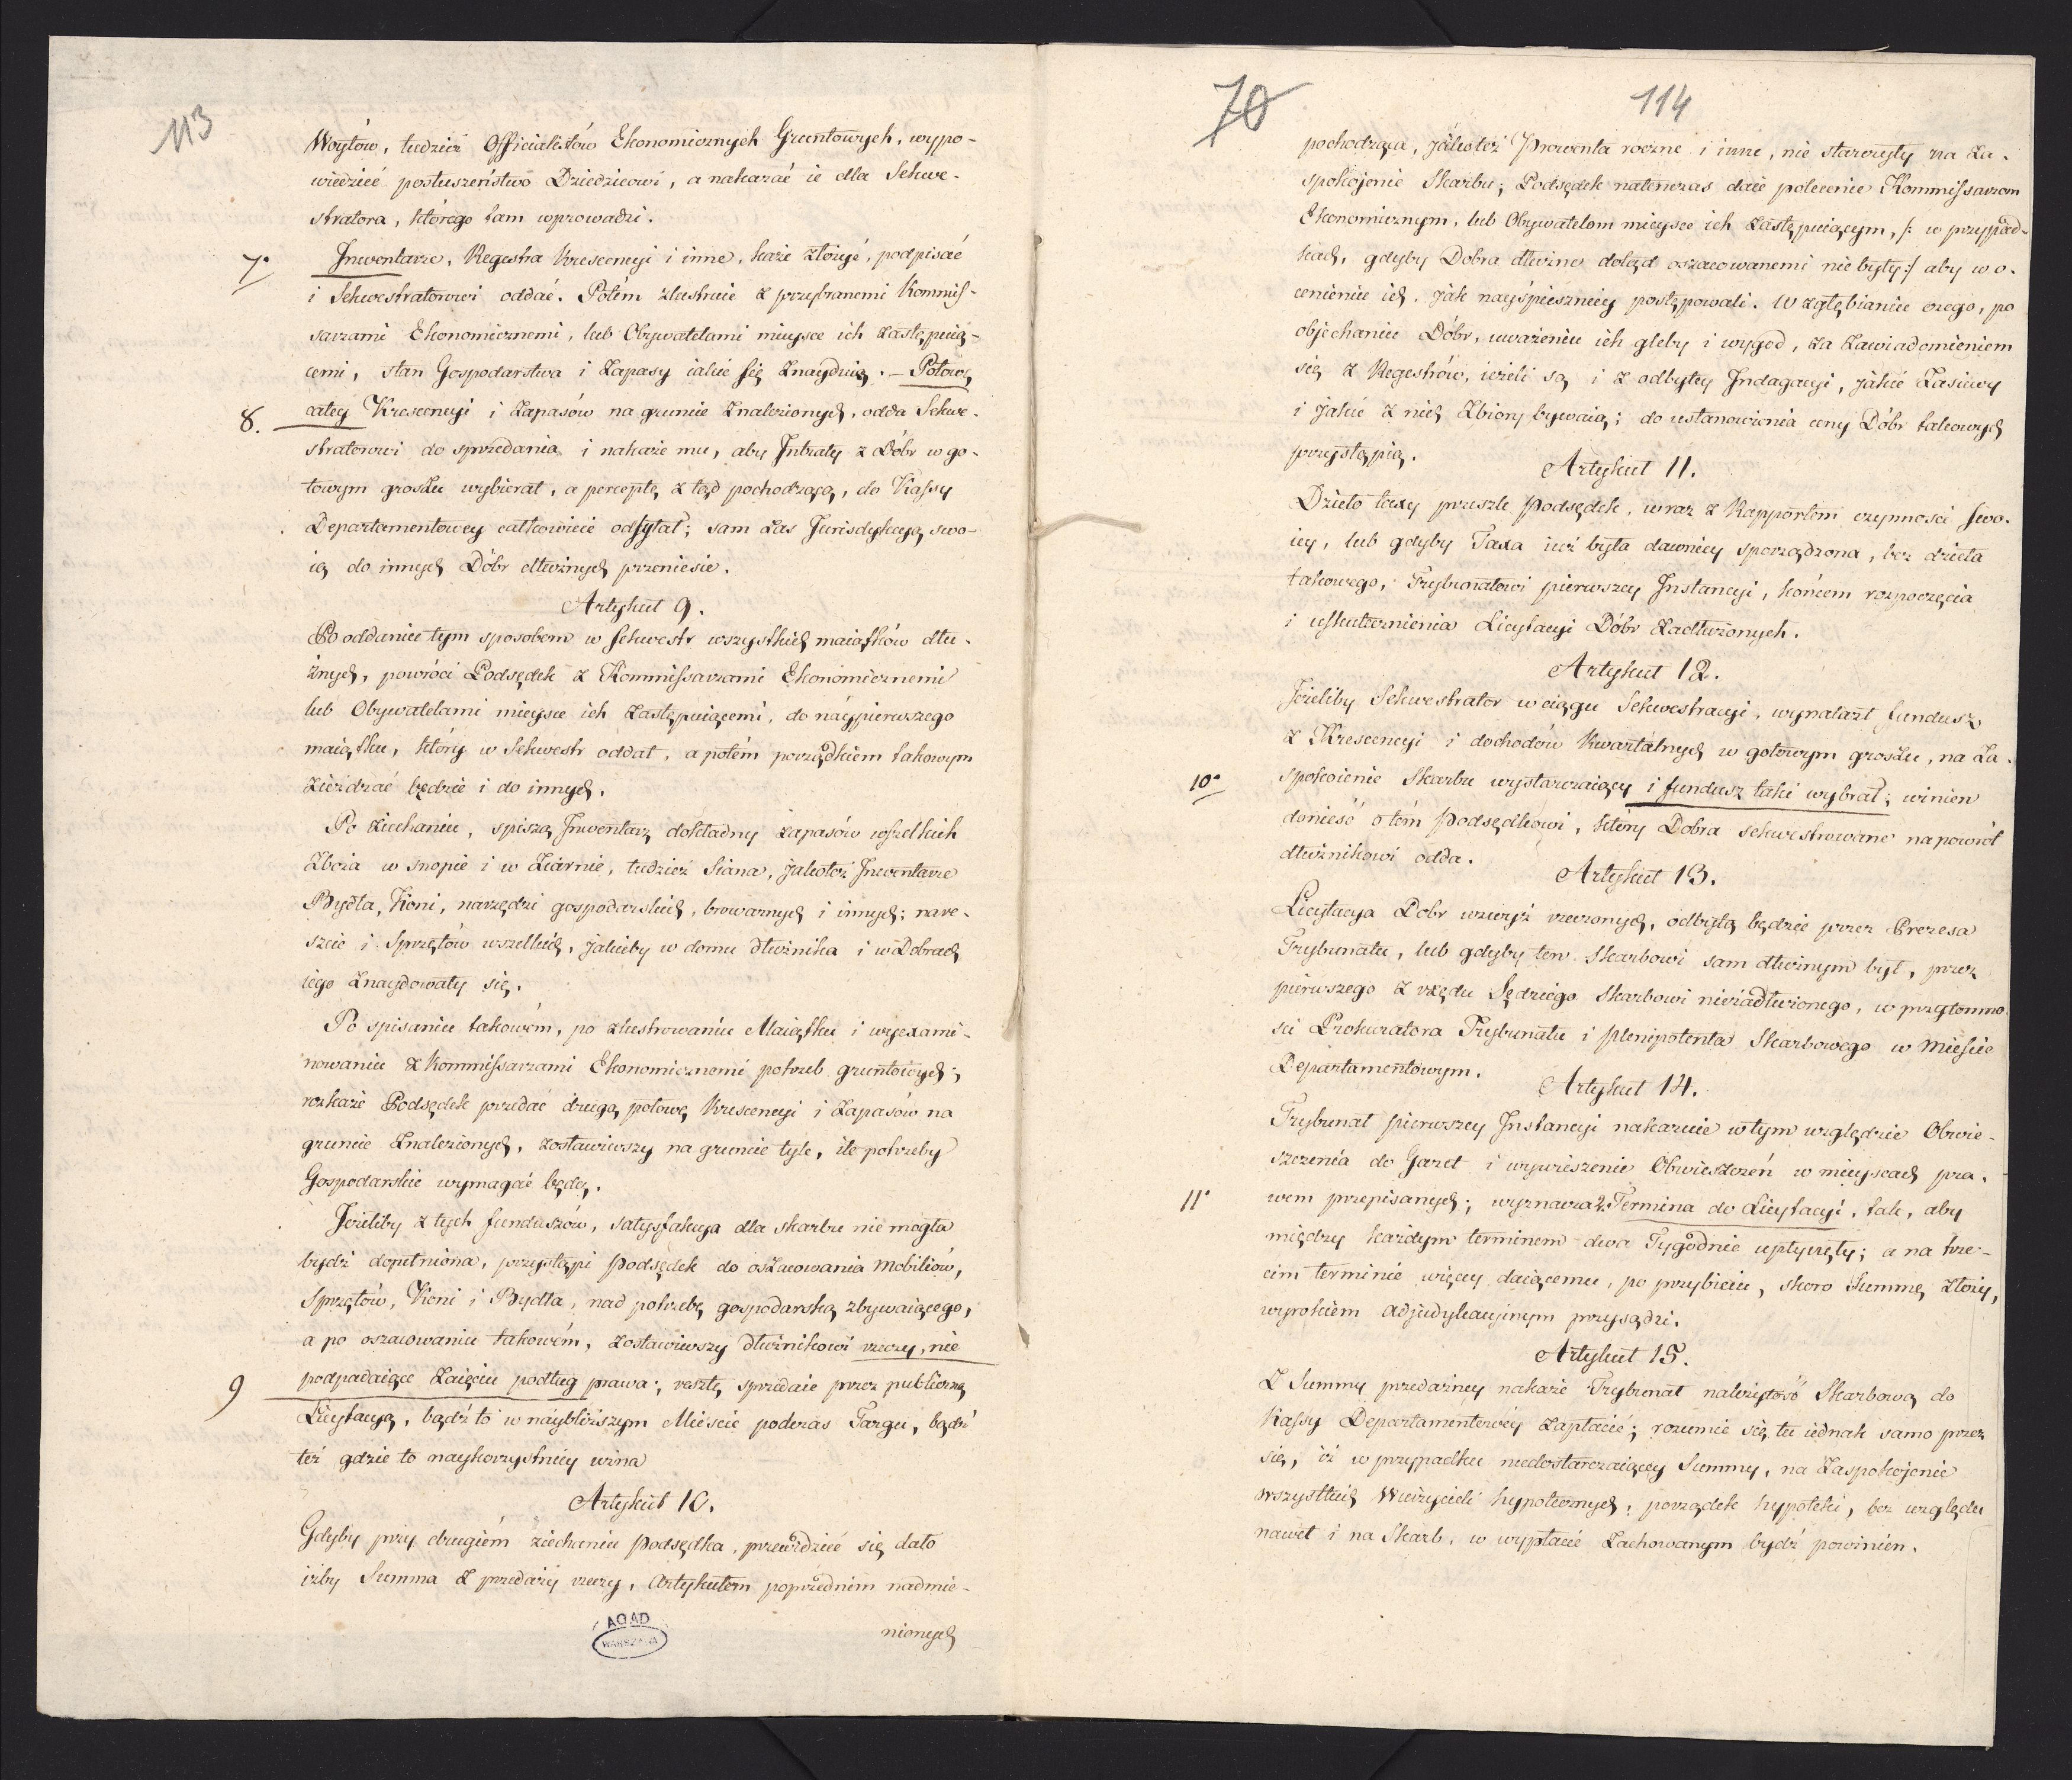 113
Woytów, tudzież Officialistów Ekonomicznych Gruntowych, wypo-
wiedzieć posłuszeństwo Dziedzicowi, a nakazać ie dla Sekwe-
stratora, którego tam wprowadzi.
7° Inwentarze, Regestra Krescencyi i inne, każe złożyć, podpisać
i Sekwestratorowi oddać. Potém zlustruie z przybranemi Kommis-
sarzami Ekonomicznemi, lub Obywatelami mieysce ich zastępuią-
cemi, stan Gospodarstwa i Zapasy iakie się znayduią. – Połowę
8. całey Krescencyi i zapasów na gruncie znalezionych, odda Sekwe-
stratorowi do sprzedania i nakaże mu, aby Intraty z Dóbr w go-
towym groszu wybierał, a perceptę z tąd pochodzącą, do Kassy
Departamentowey całkowicie odsyłał; sam zas Jurisdykcyą swo-
ią do innych Dóbr dłużnych przeniesie.
Artykuł 9.
Po oddaniu tym sposobem w sekwestr wszystkich maiątków dłu-
żnych, powróci Podsędek z Kommissarzami Ekonomicznemi
lub Obywatelami mieysce ich zastępuiącemi, do naypierwszego
maiątku, który w Sekwestr oddał, a potém porządkiem takowym
zieżdżać będzie i do innych.
Po ziechaniu, spiszą Inwentarz dokładny zapasów wszelkich
Zboża w snopie i w Ziarnie, tudzież Siana, jakoteż Inwentarze
Bydła, Koni, narzędzi gospodarskich, browarnych i innych; nare-
szcie i Sprzętów wszelkich, jakieby w domu dłużnika i w Dobrach
iego znaydowały się.
Po spisaniu takowém, po zlustrowaniu Maiątku i wyexami-
nowaniu z Kommissarzami Ekonomicznemi potrzeb gruntowych;
rozkaże Podsędek przedać drugą połowę Krescencyi i Zapasów na
gruncie znalezionych, zostawiwszy na gruncie tyle, ile potrzeby
Gospodarskie wymagać będą.
Jeżeliby z tych funduszów, satysfakcya dla skarbu nie mogła
bydź dopełniona, przystąpi Podsędek do oszacowania Mobiliów,
Sprzętów, Koni i Bydła, nad potrzebę gospodarską zbywaiącego,
a po oszacowaniu takowém, zostawiwszy dłużnikowi rzeczy, nie
9 podpadaiące zaięciu podług prawa; resztę sprzedaie przez publiczną
Licytacyą, bądź to w naybliższym Mieście podczas Targu, bądź
też gdzie to naykorzystniey uzna
Artykuł 10.
Gdyby przy drugiém ziechaniu Podsędka, przewidzieć się dało
iżby Summa z przedaży rzeczy, Artykułem poprzednim nadmie-
nionych
AGAD
WARSZAWA
70
114
pochodząca, jakoteż Prowenta roczne i inne, nie starczyły na Za-
spokojenie Skarbu; Podsędek natenczas daie polecenie Kommissarzom
Ekonomicznym, lub Obywatelom mieysce ich zastępuiącym, /: w przypad-
kach, gdyby Dobra dłużne dotąd oszacowanemi nie były:/ aby w o-
cenieniu ich, jak nayśpieszniey postępowali. W zgłębianiu czego, po
objechaniu Dóbr, uważeniu ich gleby i wygod, za zawiadomieniem
się z Regestrów, ieżeli są i z odbytey Indagacyi, jakie Zasiewy
i jakie z nich Zbiory bywaią; do ustanowienia ceny Dóbr takowych
przystąpią.
Artykuł 11.
Dzieło taxy przeszle Podsędek, wraz z Rapportem czynności swo-
iey, lub gdyby Taxa iuż była dawniey sporządzona, bez dzieła
takowego, Trybunałowi pierwszey Instancyi, końcem rozpoczęcia
i uskutecznienia Licytacyi Dóbr zadłużonych.
Artykuł 12.
Jeżeliby Sekwestrator w ciągu Sekwestracyi, wynalazł fundusz
z Krescencyi i dochodów Kwartalnych w gotowym groszu, na Za-
10° spokoienie Skarbu wystarczaiący i fundusz taki wybrał; winien
donieść o tém Podsędkowi, który Dobra sekwestrowane na powrót
dłużnikowi odda.
Artykuł 13.
Licytacya Dobr wzwyż rzeczonych, odbytą będzie przez Prezesa
Trybunału, lub gdyby ten Skarbowi sam dłużnym był, przez
pierwszego z rzędu Sędziego Skarbowi niezadłużonego, w przytomno-
ści Prokuratora Trybunału i Plenipotenta Skarbowego w Mieście
Departamentowym.
Artykuł 14.
Trybunał pierwszey Instancyi nakazuie w tym względzie Obwie-
szczenia do Gazet i wywieszenie Obwieszczeń w mieyscach pra-
11° wem przepisanych; wyznacza 2. Termina do Licytacyi, tak, aby
między każdym terminem dwa Tygodnie upłynęły; a na trze-
cim terminie więcey daiącemu, po przybiciu, skoro Summę złoży,
wyrokiem adjudykacyinym przysądzi.
Artykuł 15.
Z Summy przedażney nakaże Trybunał należytość Skarbową do
Kassy Departamentowéy zapłacić; rozumie się tu iednak samo przez
się, iż w przypadku niedostarczaiącey Summy, na Zaspokojenie
wszystkich Wierzycieli hypotecznych, porządek hypoteki, bez względu
nawet i na Skarb, w wypłacie zachowanym bydź powinien.